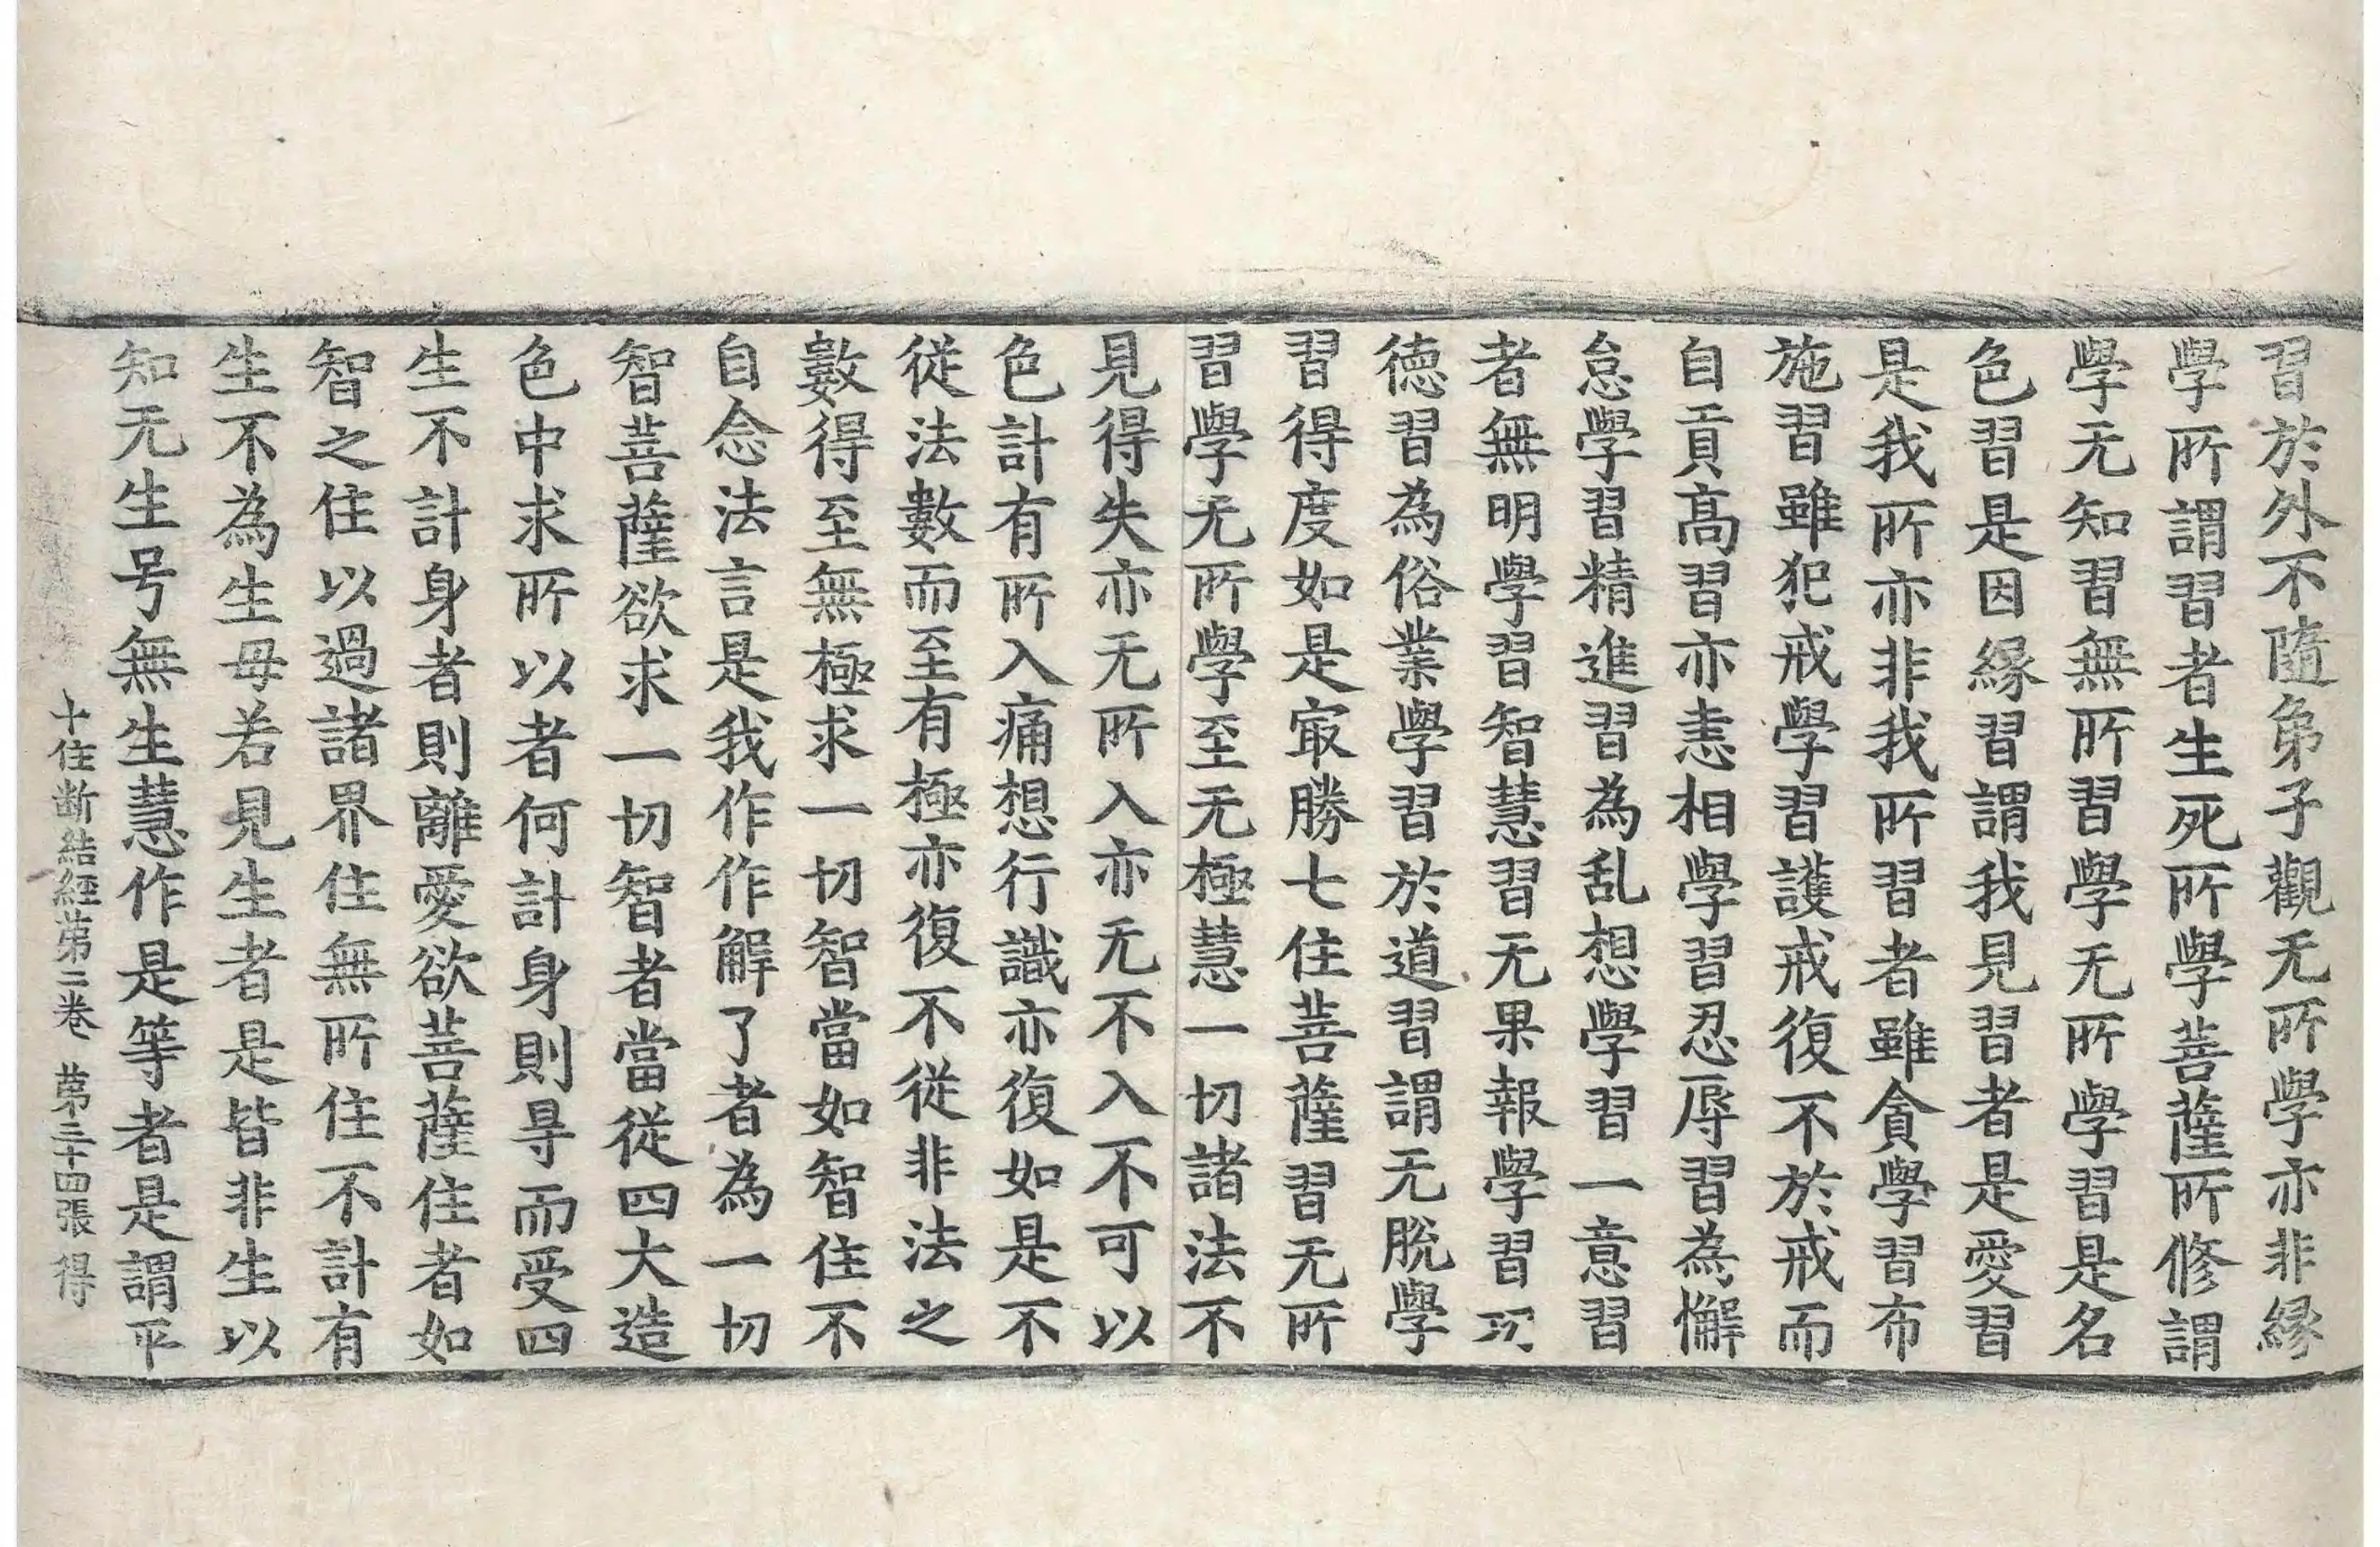 習於外不隨弟子觀无所學亦非緣
學所謂習者生死所學菩薩所修謂
學无知習無所習學无所學習是名
色習是因緣習謂我見習者是愛習
是我所亦非我所習者雖貪學習布
施習雖犯戒學習護戒復不於戒而
自貢高習亦恚相學習忍辱習為懈
怠學習精進習為乱想學習一意習
者無明學習智慧習无果報學習功
德習為俗業學習於道習謂无脫學
習得度如是㝡勝七住菩薩習无所
習學无所學至无極慧一切諸法不
見得失亦无所入亦无不入不可以
色計有所入痛想行識亦復如是不
從法數而至有極亦復不從非法之
數得至無極求一切智當如智住不
自念法言是我作作解了者為一切
智菩薩欲求一切智者當從四大造
色中求所以者何計身則㝵而受四
生不計身者則離愛欲菩薩住者如
智之住以過諸界住無所住不計有
生不為生毋若見生者是皆非生以
知无生号無生慧作是等者是謂平
十住断結經苐二卷 苐三十四張 得